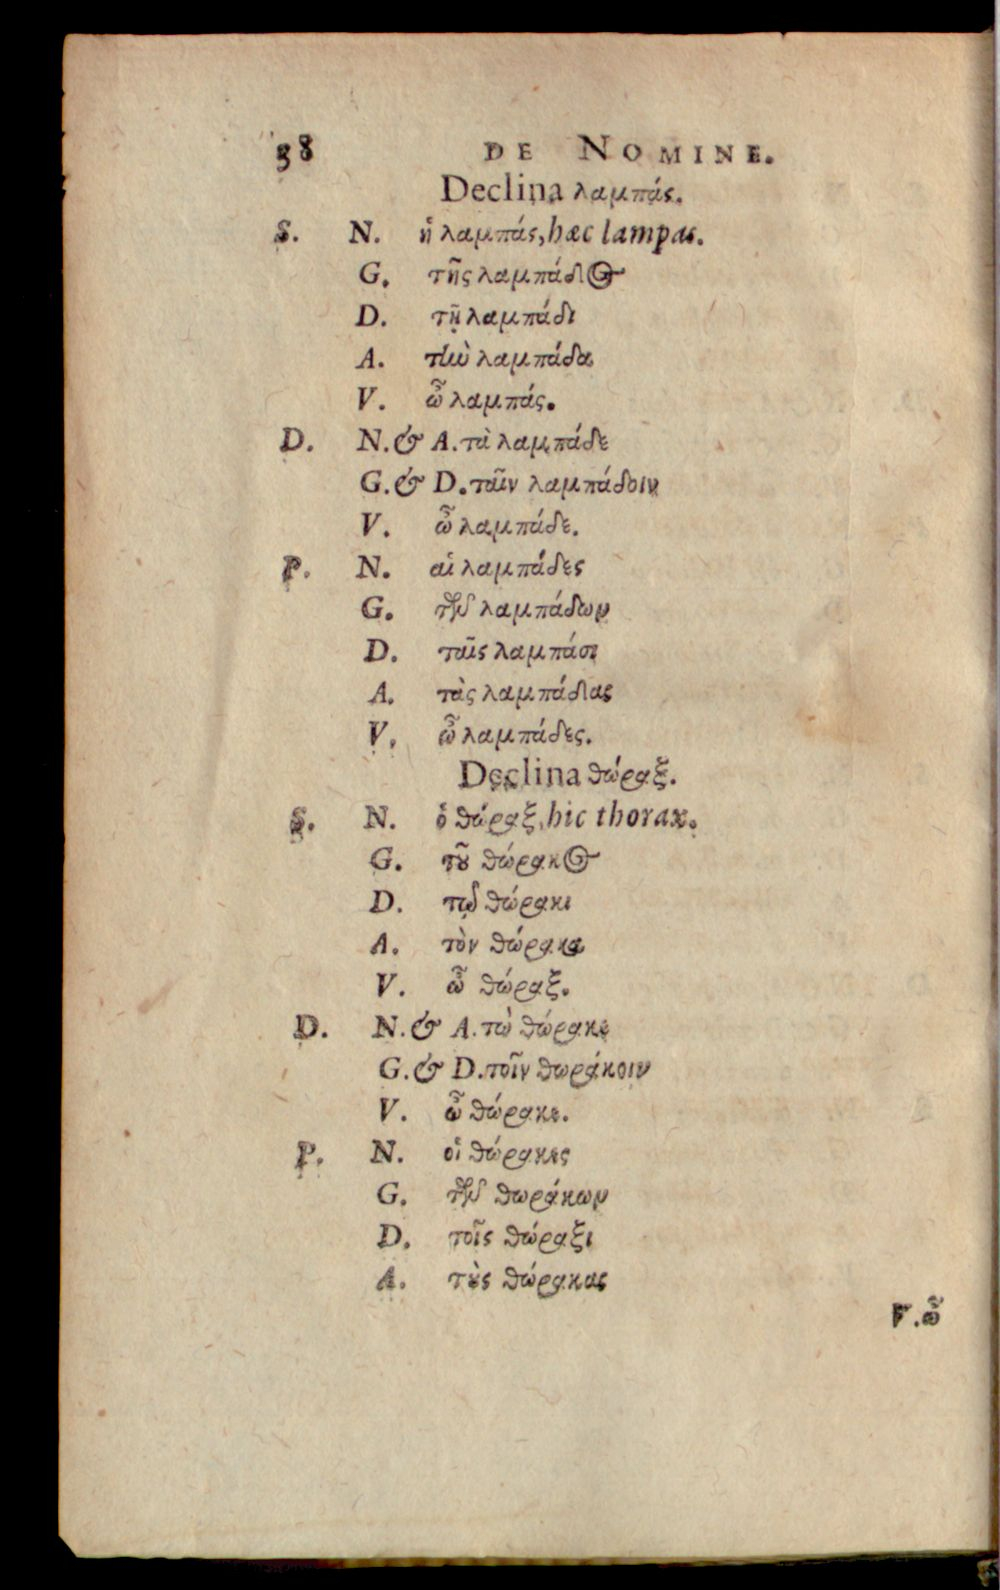 38 DE NOMINE.
Declina λαμπάς.
S. N. ἡ λαμπάς, hæc lampas.
G. τῆς λαμπάδος
D. τῇ λαμπάδι
A. τὴν λαμπάδα
V. ὦ λαμπάς.
D. N. & A. τὰ λαμπάδε
G. & D. ταῖν λαμπάδοιν
V. ὦ λαμπάδε.
P. N. αἱ λαμπάδες
G. τῶν λαμπάδων
D. ταῖς λαμπάσι
A. τὰς λαμπάδας
V. ὦ λαμπάδες.
Declina θώραξ.
S. N. ὁ θώραξ, hic thorax.
G. τοῦ θώρακος
D. τῷ θώρακι
A. τὸν θώρακα
V. ὦ θώραξ.
D. N. & A. τὼ θώρακε
G. & D. τοῖν θωράκοιν
V. ὦ θώρακε.
P. N. οἱ θώρακες
G. τῶν θωράκων
D. τοῖς θώραξι
A. τοὺς θώρακας
V. ὦ